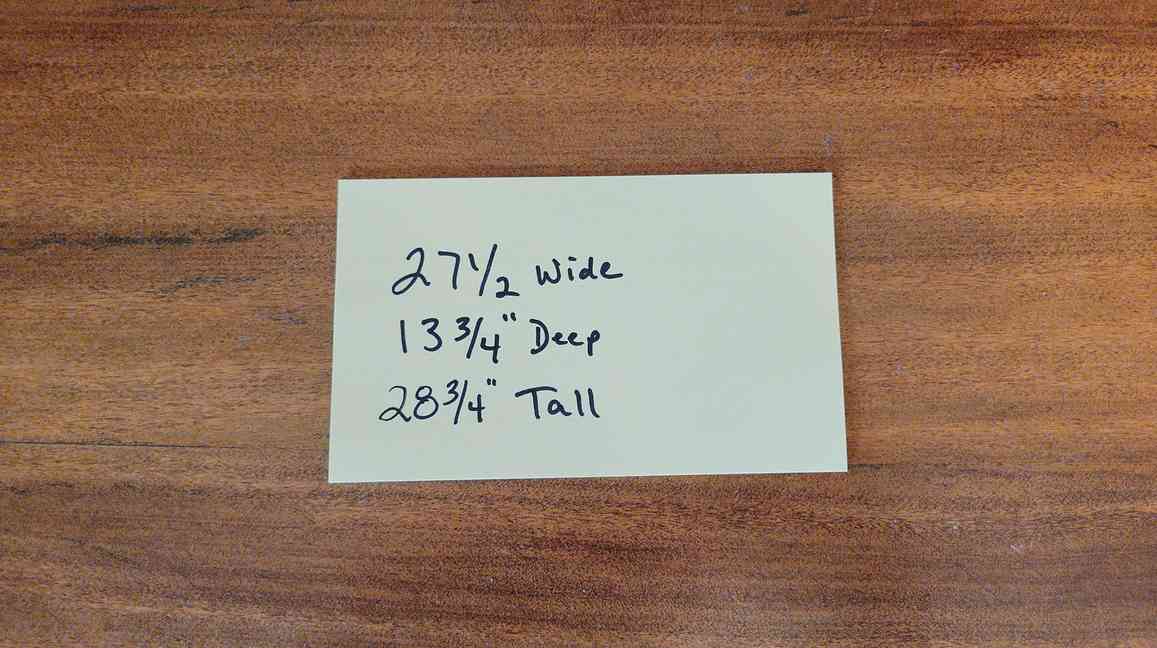 27 1/2 Wide
13 3/4" Deep
28 3/4" Tall